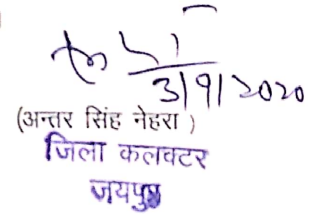 3/9/2020
(अन्तर सिंह नेहरा )
जिला कलक्टर
जयपुर